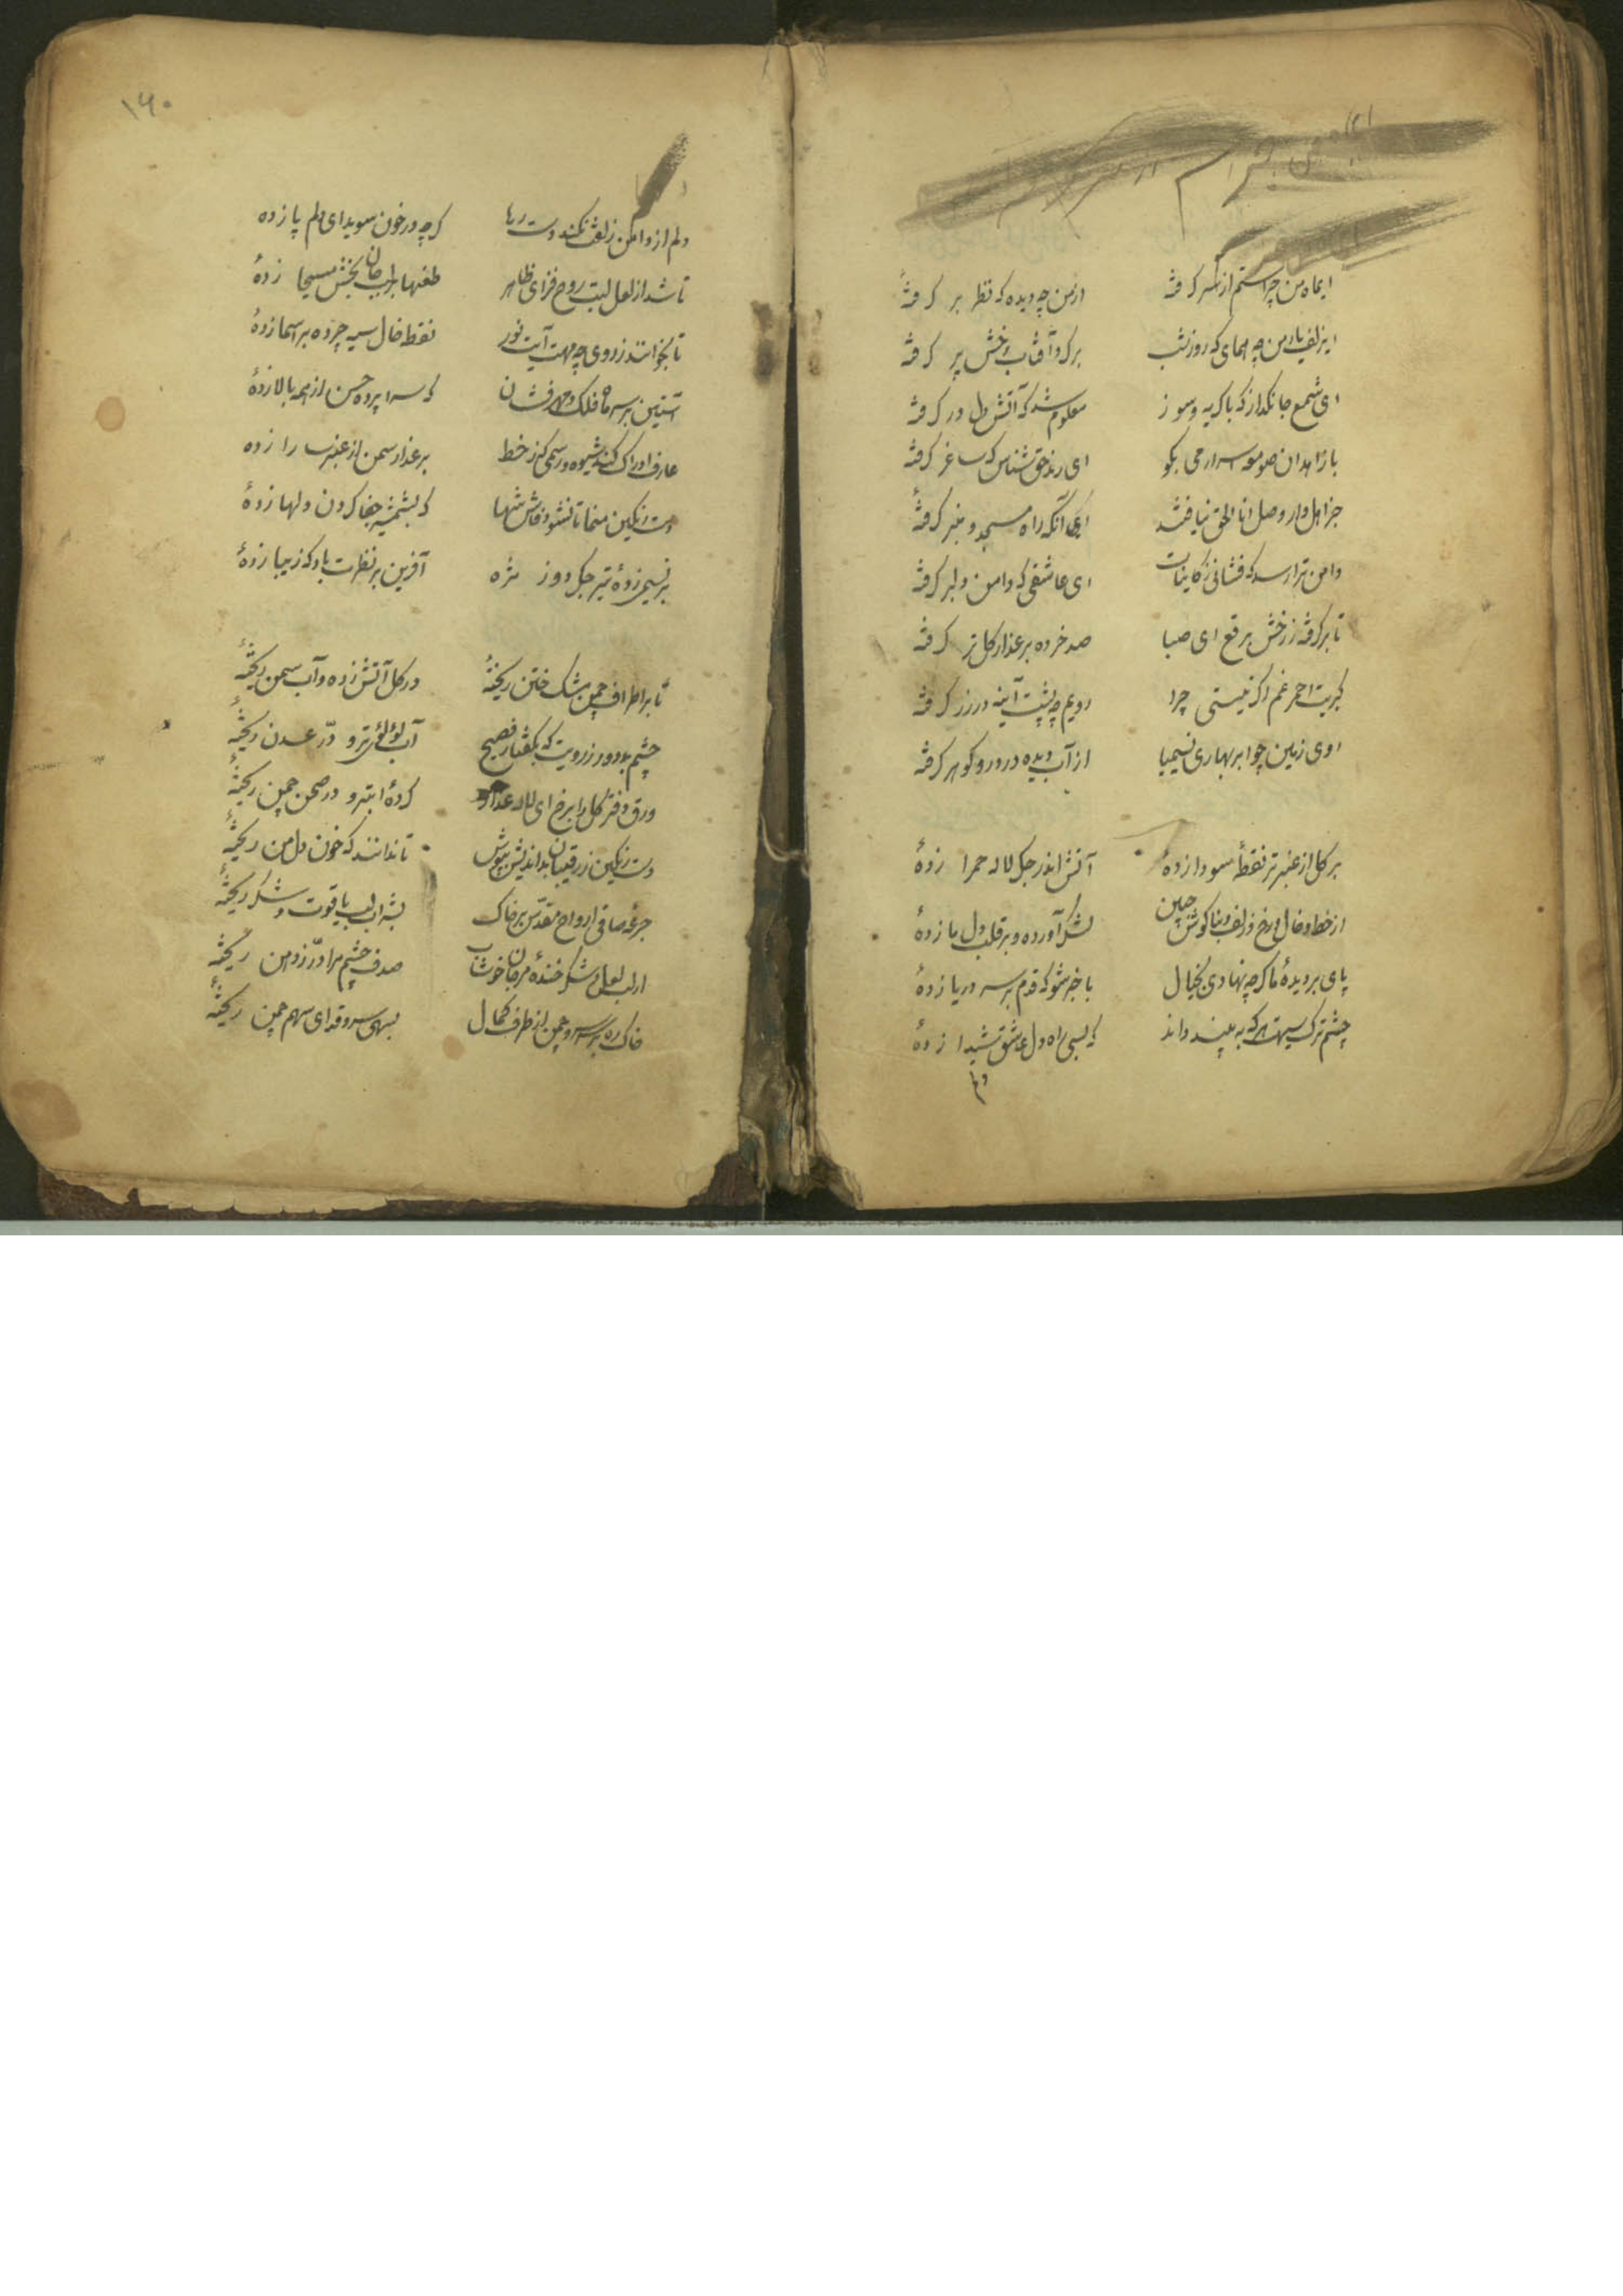 ایماه من چرا ستم از سر کرفته
ازمن چه دیده که نظر بر کرفتهٔ
ایزلف یار من چه همای که روز و شب
برکرد آفتاب رخش پر کرفتهٔ
ای شمع جانکداز که با کریه و سوز
معلوم شد که آتش دل در کرفتهٔ
با زاهدان صومعه اسرار می بکو
ای رند حق شناس که ساغر کرفتهٔ
جز اهل دار وصل انا الحق نیافتند
ای آنکه راه مسجد و منبر کرفتهٔ
دامن ترا رسد که فشانی ز کاینات
ای عاشقی که دامن دلبر کرفتهٔ
تا برکرفته ز رخش برقع ای صبا
صد خرده بر عذار کل تر کرفتهٔ
کبریت احمر غم اکر نیستی چرا
رویم چو پشت آینه در زر کرفتهٔ
روی زمین چو ابر بهاری نسیمیا
از آب دیده در در و کوهر کرفتهٔ
بر کل از عنبر تر نقطهٔ سودا زدهٔ
آتش اندر جکر لاله حمرا زدهٔ
از خط و خال و رخ و زلف و بناکوش و جبین
لشکر آورده و بر قلب دل ما زدهٔ
پای بر دیدهٔ ما کرچه نهادی بخیال
با خبر شو که قدم بر سر دریا زدهٔ
چشم ترک سیهت هر که به بیند داند
که بسی راه دل عاشق شیدا زدهٔ
۱۶۰
دلم از دامن زلفت نکند دست رها
کرچه در خون سویدای دلم پا زده
تا شد از لعل لبت روح فزای ظاهر
طعنها بر لب جان بخش مسیحا زدهٔ
تا بخوانند ز روی چو مهت آیت نور
نقطه خال سیه چرده بر اسما زدهٔ
آستین بر سر ماه فلک و مهر فشان
که سراپرده حسن از همه بالا زدهٔ
عارف ادراک کند شیوه و رسمی کز خط
بر عذار سمن از عنبر سارا زده
دست رنکین منما تا نشود فاش شها
که بشمشیر جفا کردن دلها زدهٔ
بر نسیمی زدهٔ تیر جکر دوز مژه
آفرین بر نظرت باد که زیبا زدهٔ
تا بر اطراف چمن مشک ختن ریختهٔ
در کل آتش زده و آب سمن ریختهٔ
چشم بد دور ز رویت که بکفتار فصیح
آب لؤلؤی تر و درّ عدن ریختهٔ
ورق دفتر کل را بر رخ ای لاله عذار
کردهٔ ابتر و در صحن چمن ریختهٔ
دست رنکین ز رقیبان بد اندیش بپوش
تا ندانند که خون دل من ریختهٔ
جرعه صافی ارواح مقدّس بر خاک
بشراب لب یاقوت و شکر ریختهٔ
از لب لعل و شکر خندهٔ مرجان خوشاب
صدف چشم مرا درّ ز دهن ریختهٔ
خاک ره بر سر سرو چمن از طرف کمال
بسهی سرو قد ای سهم چمن ریختهٔ